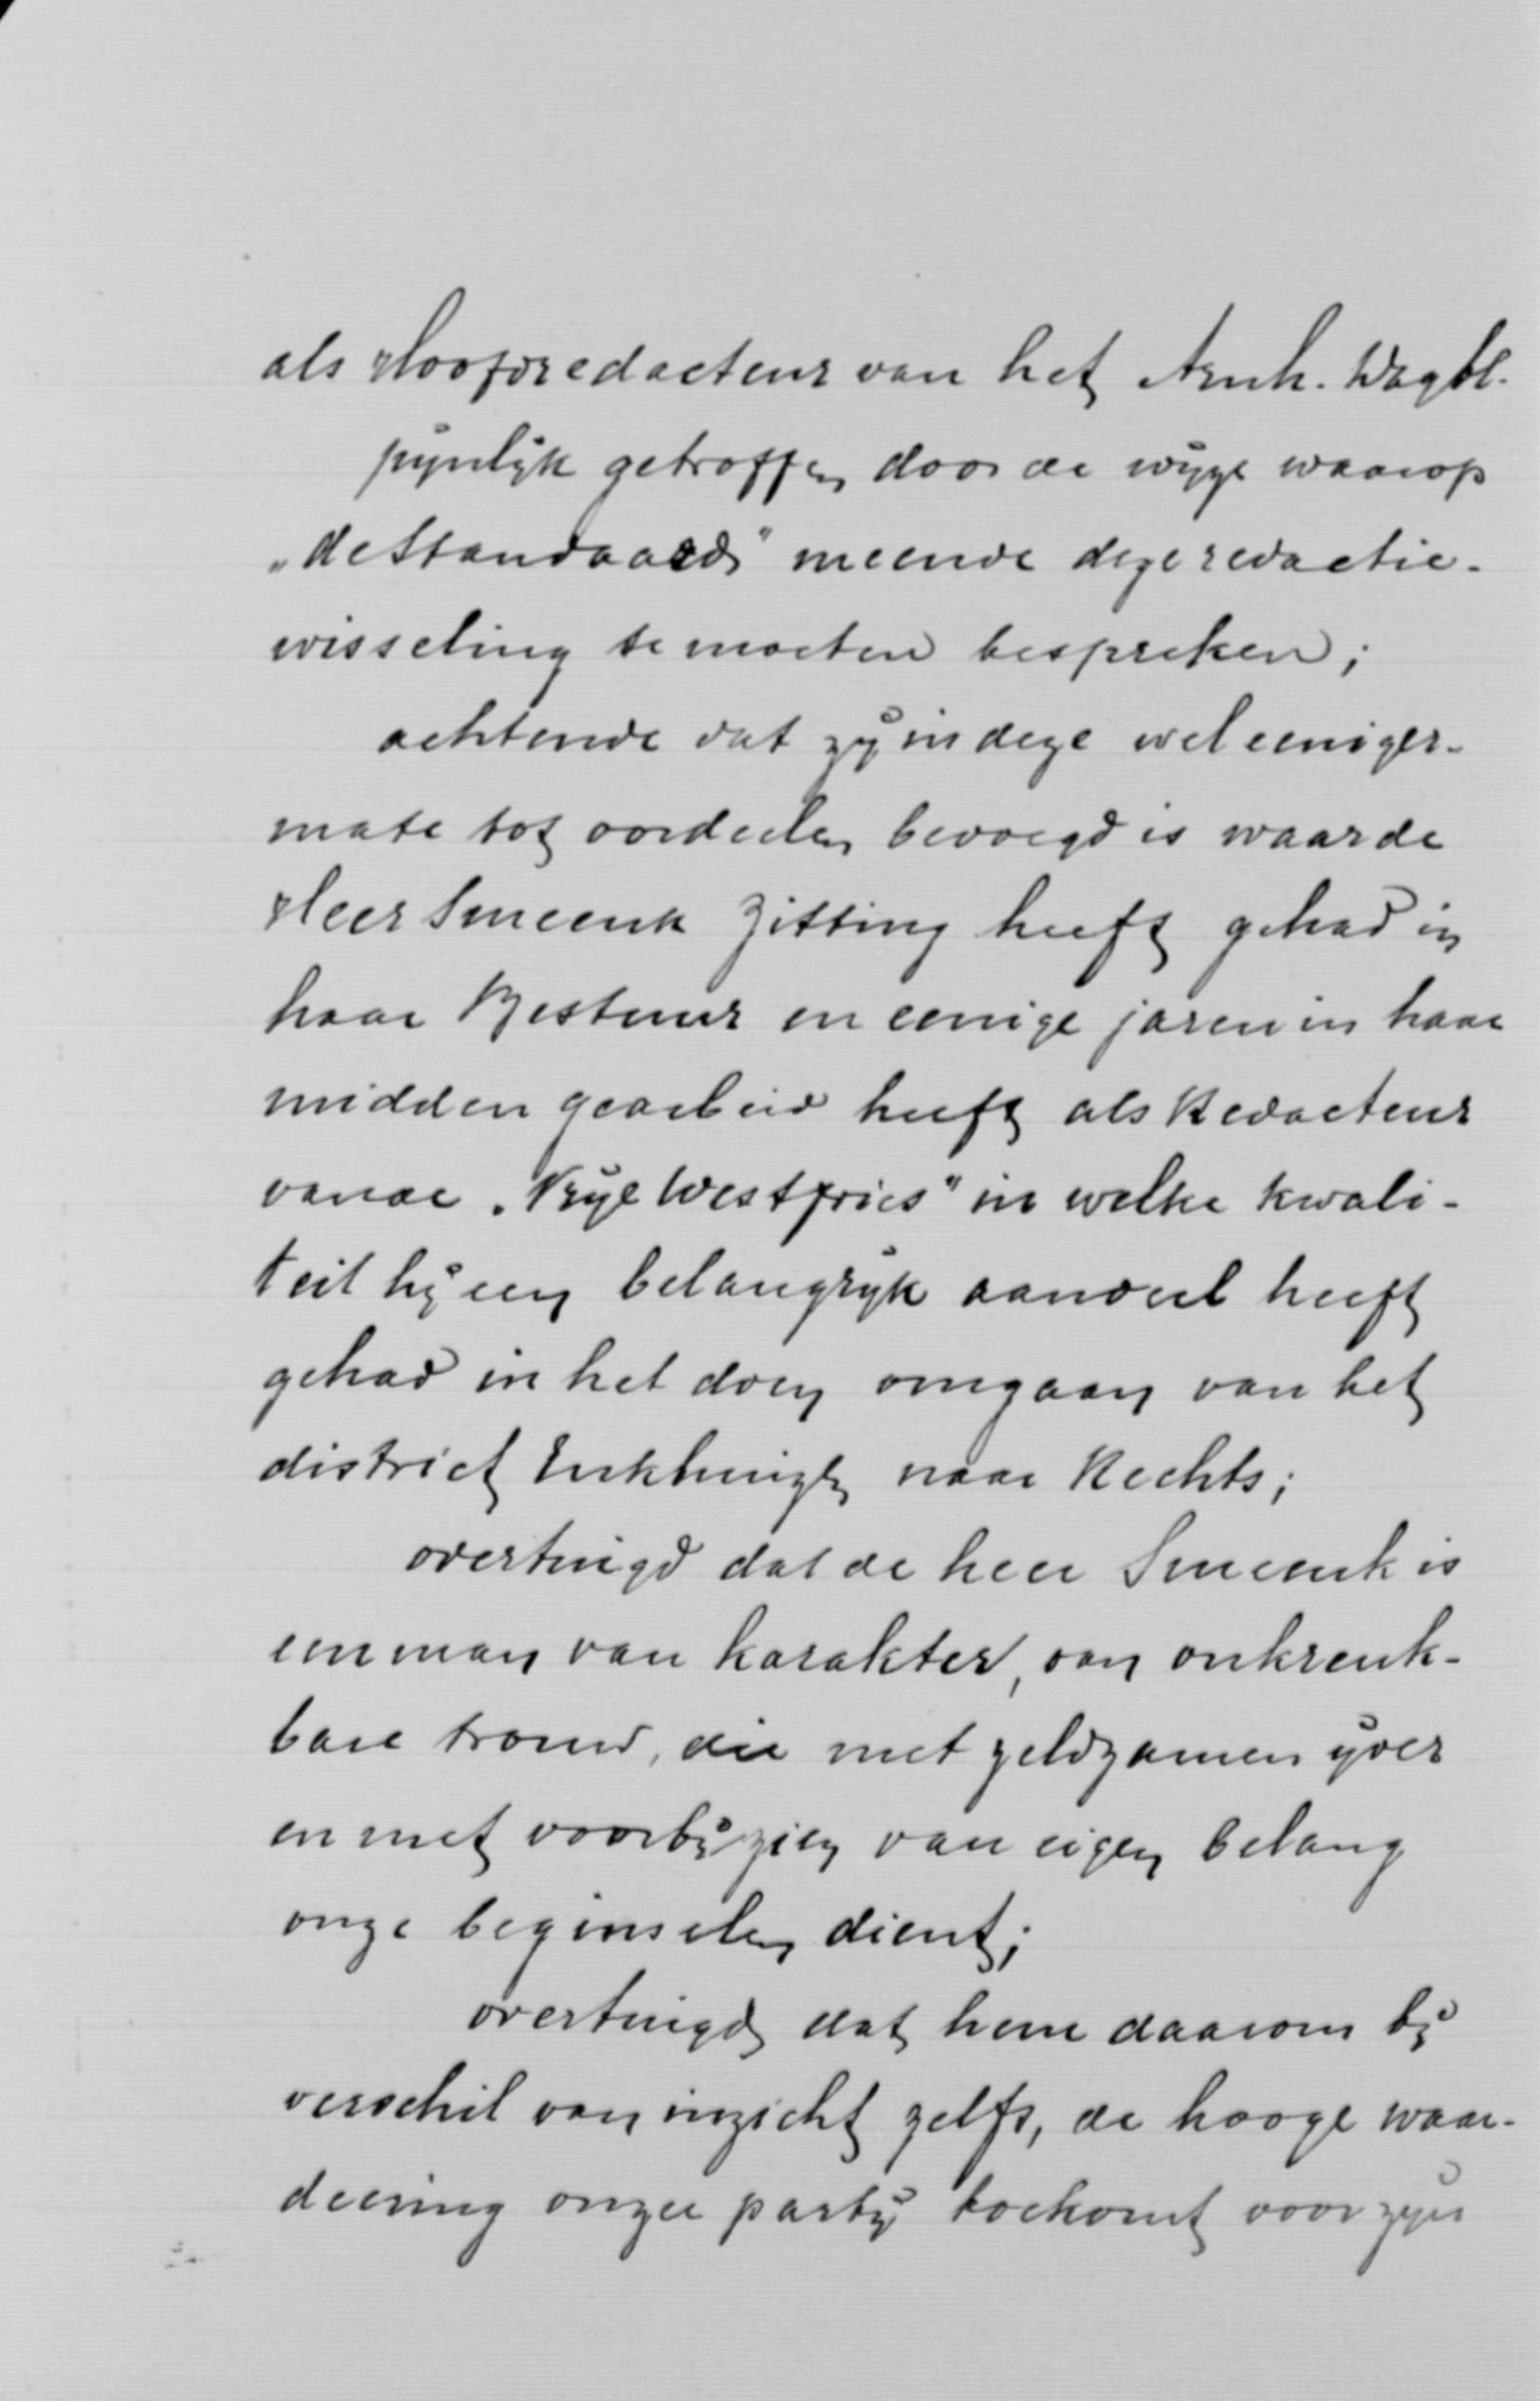 als Hoofdredacteur van het Arnh. Dagbl.
pijnlijk getroffen door de wijze waarop
„de Standaard" meende deze redactie-
wisseling te moeten bespreken;
achtende dat zij in deze wel eeniger-
mate tot oordeelen bevoegd is waar de
Heer Smeenk zitting heeft gehad in
haar Bestuur en eenige jaren in haar
midden gearbeid heeft als Redacteur
van de „Vrije Westfries" in welke kwali-
teit hij een belangrijk aandeel heeft
gehad in het doen omgaan van het
district Enkhuizen naar Rechts;
overtuigd dat de heer Smeenk is
een man van karakter, van onkreuk-
bare trouw, die met zeldzamen ijver
en met voorbijzien van eigen belang
onze beginselen dient;
overtuigd dat hem daarom bij
verschil van inzicht zelfs, de hooge waar-
deering onzer partij toekomt voor zijn